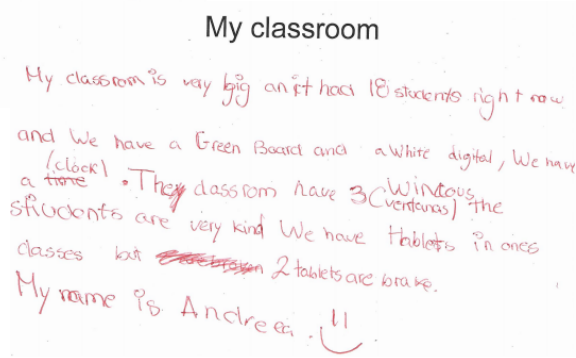 My classroom
My classrom is very big an it had 18 students right now
and We have a Green Board and a White digital, We have
a time (clock). They classrom have 3 windous (ventanas) the
students are very kind We have tablets in ones
classes but 2 tablets are brake.
My name is Andreea.